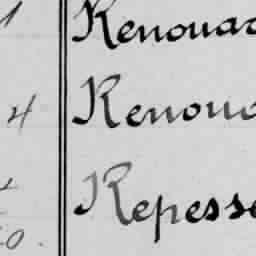 1 Renouar
4 Renou
Repesse
0.